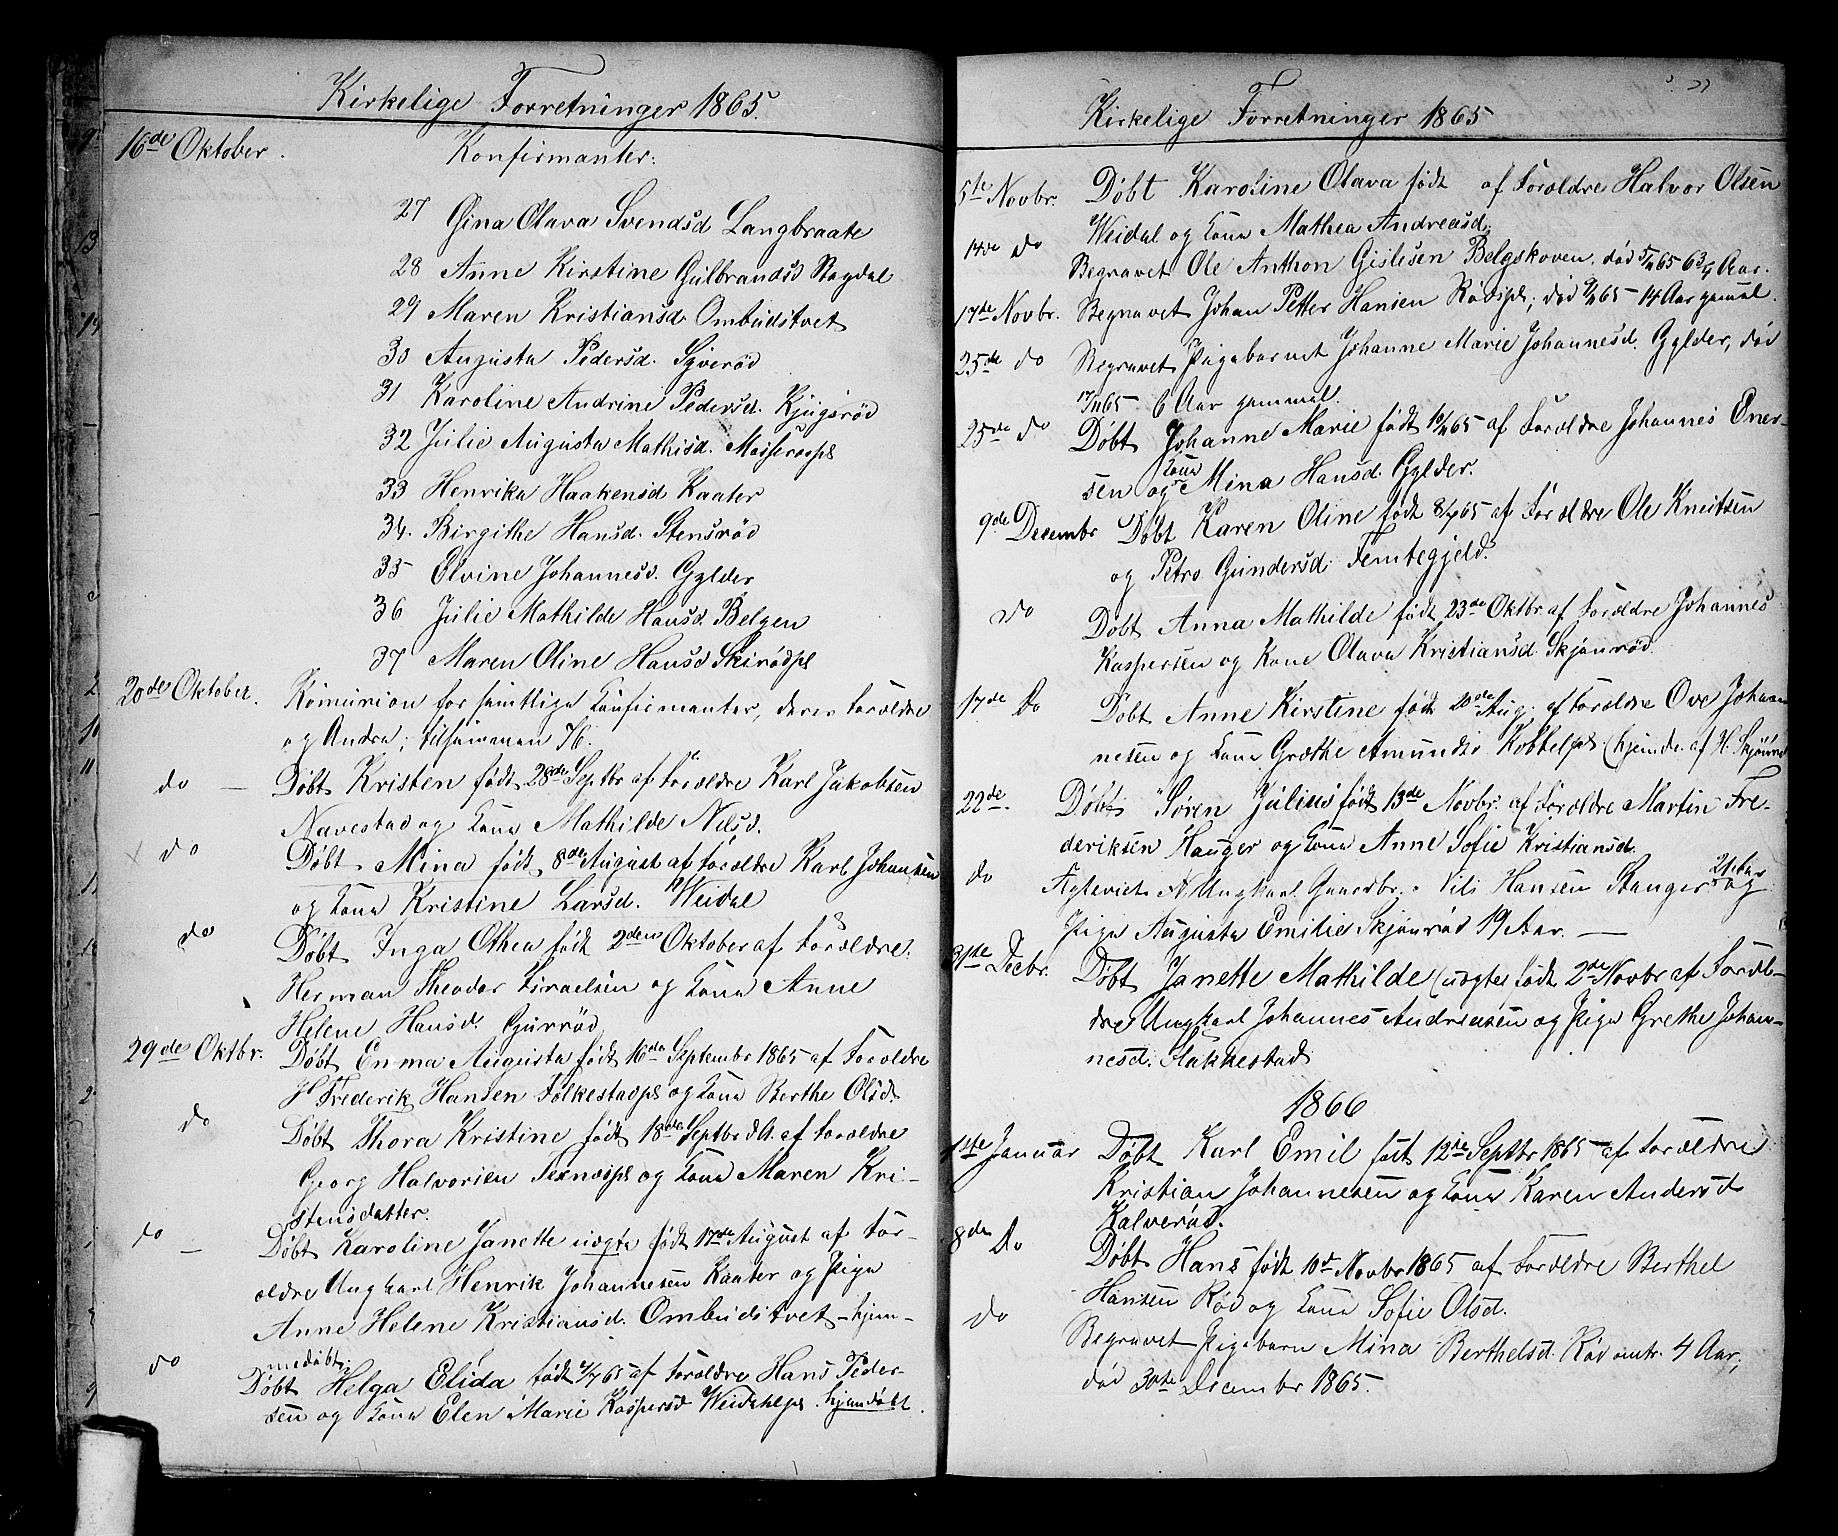 Kirkelige Forretninger 1865.
16de Oktober. Konfirmanter:
27 Gina Olava Svendsd Langbraate
28 Anne Kirstine Gulbrandsd Rogdal
29 Maren Kristiansd. Ombudstvet
30 Augusta Pedersd. Syverød
31 Karoline Andrine Pedersd. Kjugsrød
32 Julie Augusta Mathisd.
33 Henrika Haakensd Kaater
34. Birgithe Hansd. Stensrød
35 Olvine Johannesd. Gylder
36 Julie Mathilde Hansd. Belgen
37 Maren Oline Hansd Skirødpl
20de Oktober. Komunion for samtlige Konfirmanter, deres Forældre
og Andre; tilsammen 76.
do — Døbt Kristen født 28de Septbr af Forældre Karl Jakobsen
Navestad og Kone Mathilde Nilsd.
do Døbt Mina født 8de August af Forældre Karl Johansen
og Kone Kristine Larsd. Weidal
do Døbt Inga Othea født 2den Oktober af Forældre
Herman Theodor Israelsen og Kone Anne
Helene Hansd. Gurrød
29de Oktbr. Døbt Emma Augusta født 16de September 1865 af Forældre
H Frederik Hansen Folkestadpl og Kone Berthe Olsd.
do Døbt Thora Kristine født 18de Septbr d.A. af Forældre
Georg Halvorsen Ternæspl og Kone Maren Kri-
stensdatter.
do — Døbt Karoline Janette uægte født 17de August af For-
ældre Ungkarl Henrik Johannesen Kaater og Pige
Anne Helene Kristiansd. Ombudstvet – hjem-
medøbt
do Døbt Helga Elida født 2/7 65 af Forældre Hans Peder-
sen og Kone Elen Marie Kaspersd Weidahlpl. hjemdøbt.
Kirkelige Forretninger 1865
5te Novbr. Døbt Karoline Olava født af Forældre Halvor Olsen
Weidal og Kone Mathea Andreasd.
14de do Begravet Ole Anthon Gislesen Belgskoven, død 5/11 65 63/4 Aar.
17de Novbr. Begravet Johan Petter Hansen Rødspl; død 9/11 65 – 14 Aar gammel.
25de do Begravet Pigebarnet Johanne Marie Johannesd. Gylder, død
17/11 65 6 Aar gammel.
25de do Døbt Johanne Marie født 10/11 65 af Forældre Johannes Ener-
sen og Kone Mina Hansd. Gylder.
9de Decembr Døbt Karen Oline født 8/9 65 af Forældre Ole Kneitsen
og Petro. Gundersd. Femtegjeld.
do Døbt Anna Mathilde født 23de Oktbr af Forældre Johannes
Kaspersen og Kone Olava Kristiansd Skjønrød.
17de Do Døbt Anne Kirstine født 20de Aug. af Forældre Ove Johan-
nesen og Kone Grethe Amundsd. Kobbelpl (hjemdø. af H. Skjønrød
22de. Døbt Søren Julius født 13de Novbr. af Forældre Martin Fre-
deriksen Hauger og Kone Anne Sofie Kristiansd.
do Ægteviet Ungkarl Gaardbr. Nils Hansen Stanger 21 Aar og
Pige Augusta Emilie Skjønrød 19 Aar. —
31te Decbr. Døbt Janette Mathilde (uægte) født 2de Novbr af Foræl-
dre Ungkarl Johannes Andreasen og Pige Grethe Johan-
nesd. Hakkestad
1866
1ste Januar Døbt Karl Emil født 12te Septbr 1865 af Forældre
Kristian Johannesen og Kone Karen Andersd
Kalverød.
8de Do Døbt Hans født 10d Novbr 1865 af Forældre Berthel
Hansen Rød og Kone Sofie Olsd.
do Begravet Pigebarn Mina Berthelsd. Rød omtr. 4 Aar,
død 30te December 1865.